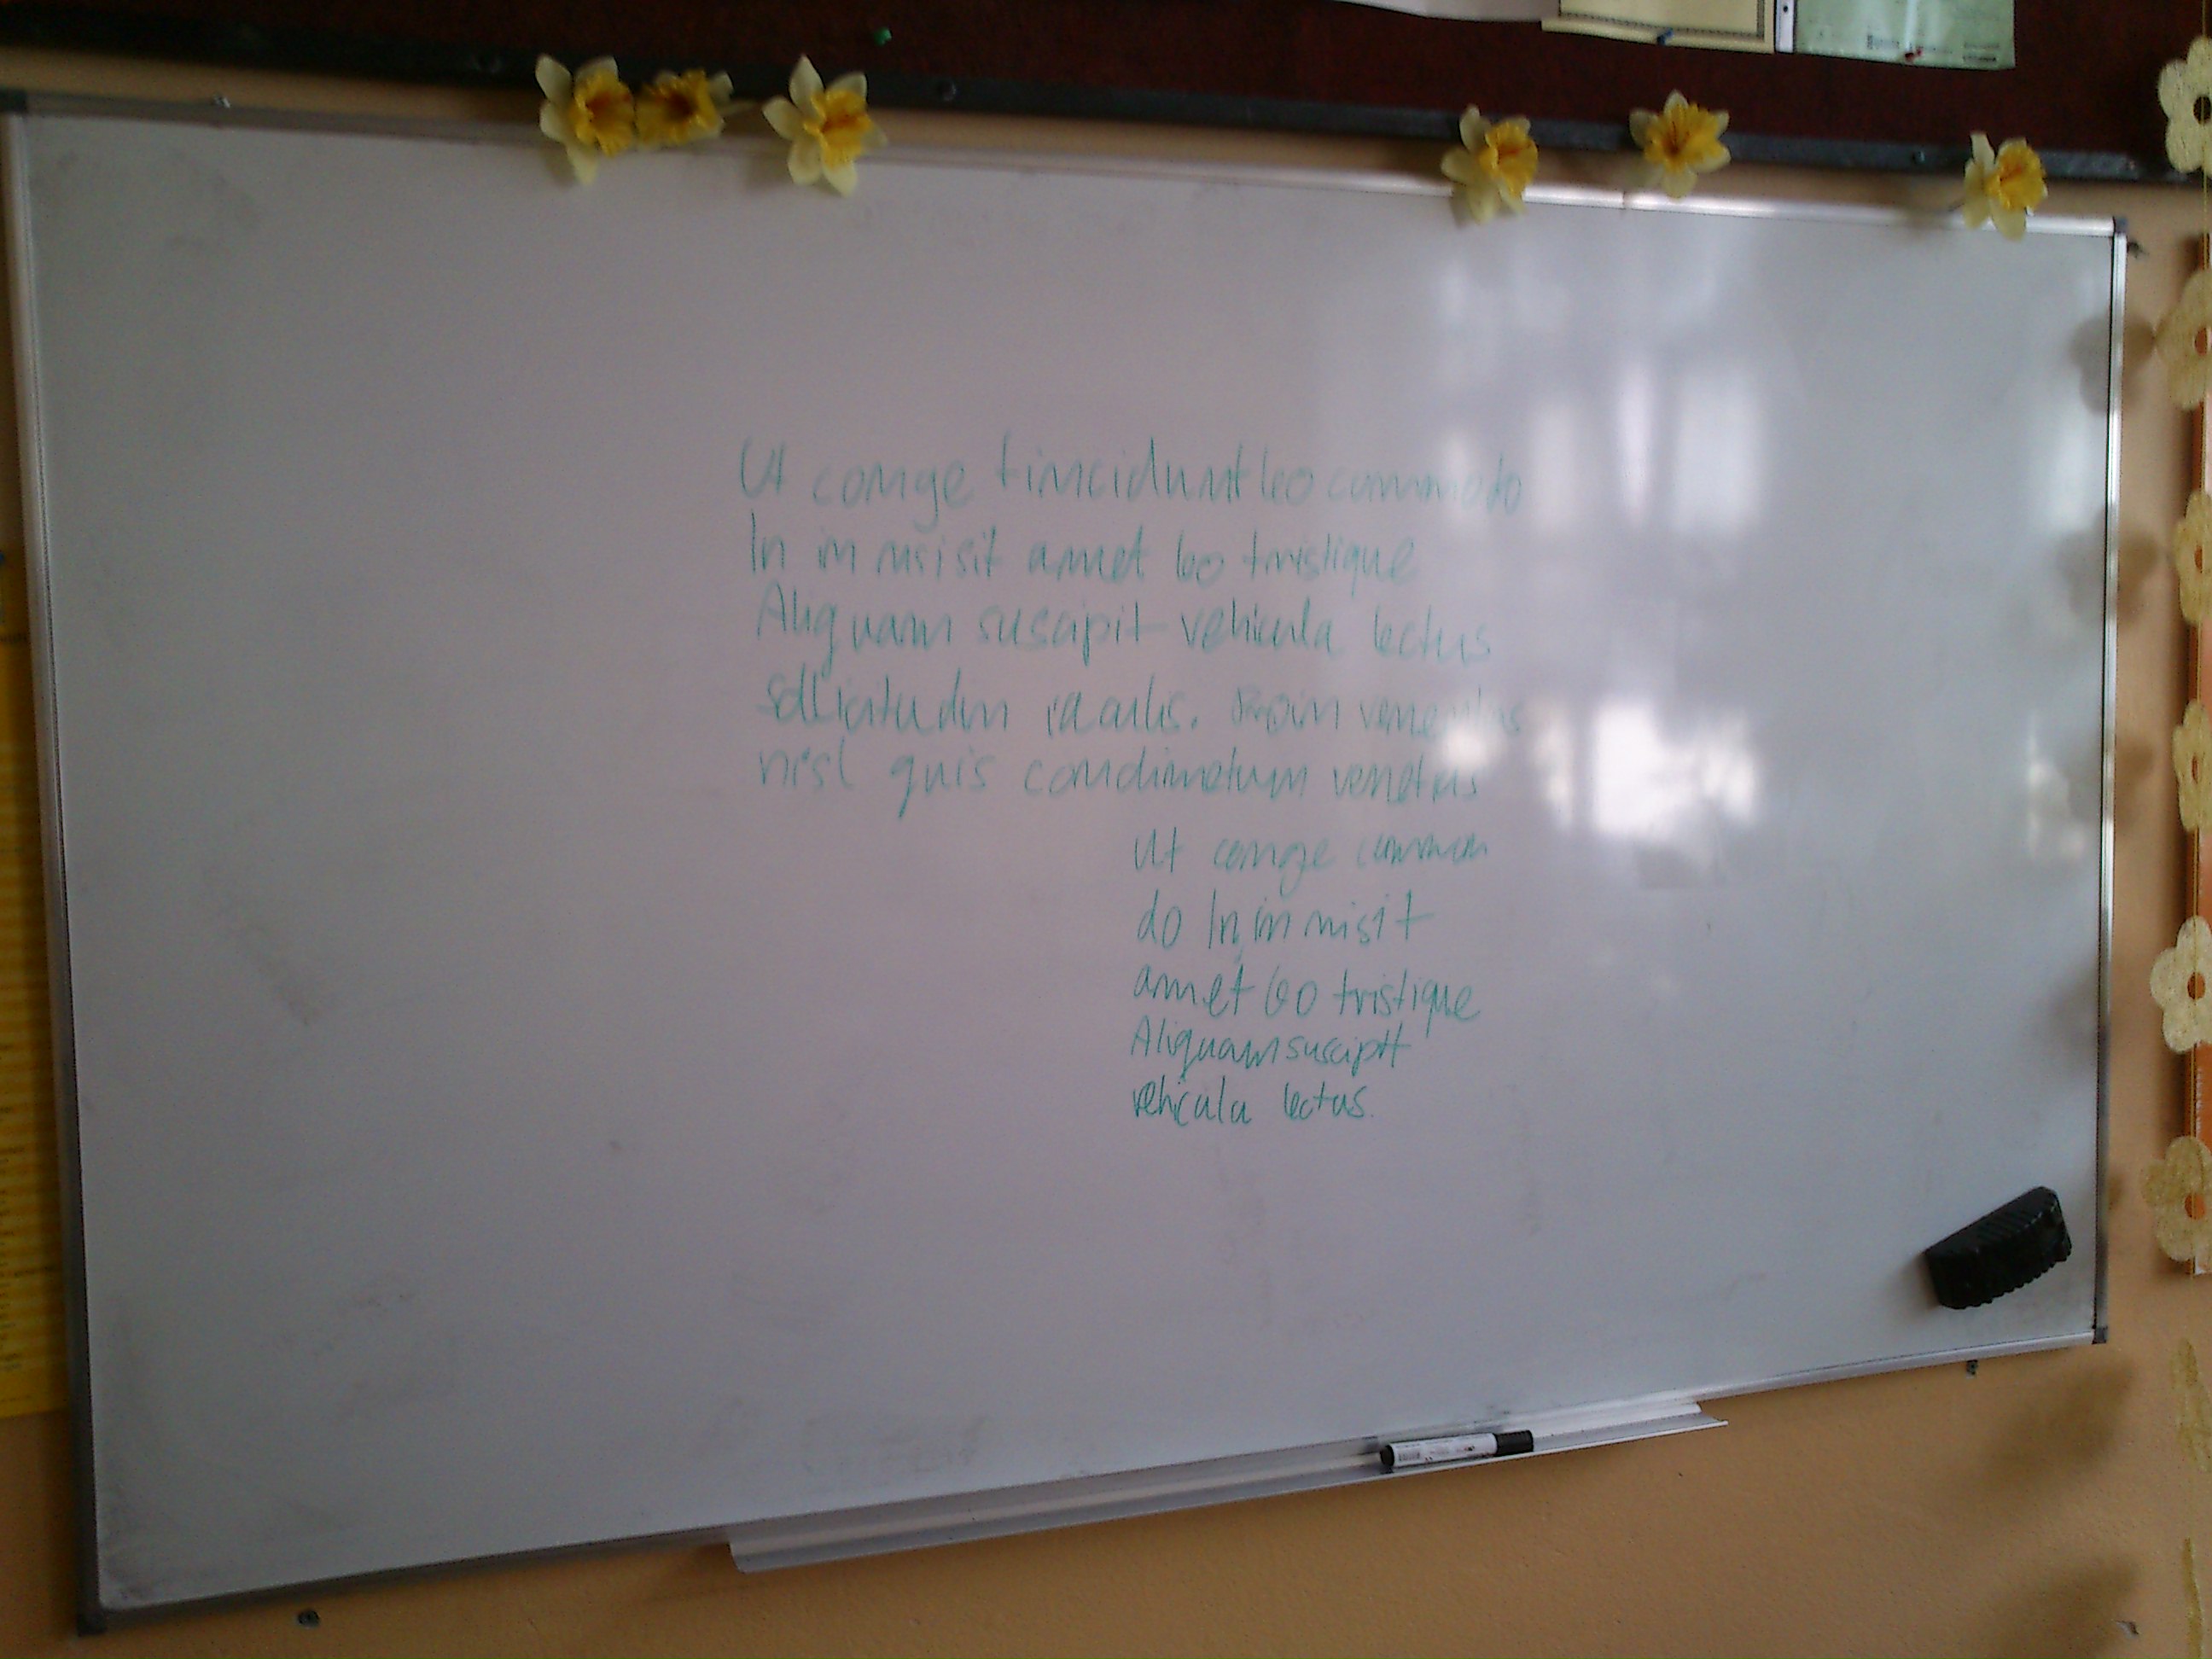 Ut conge tincidunt leo commodo
In in nisi sit amet leo tristique
Aliquam suscipit vehicula lectus
sollicitudin iaculis. Proin venenatis
nisl quis condimetum venetus
Ut conge common
do In in nisi sit
amet leo tristique
Aliquam suscipit
vehicula lectus.